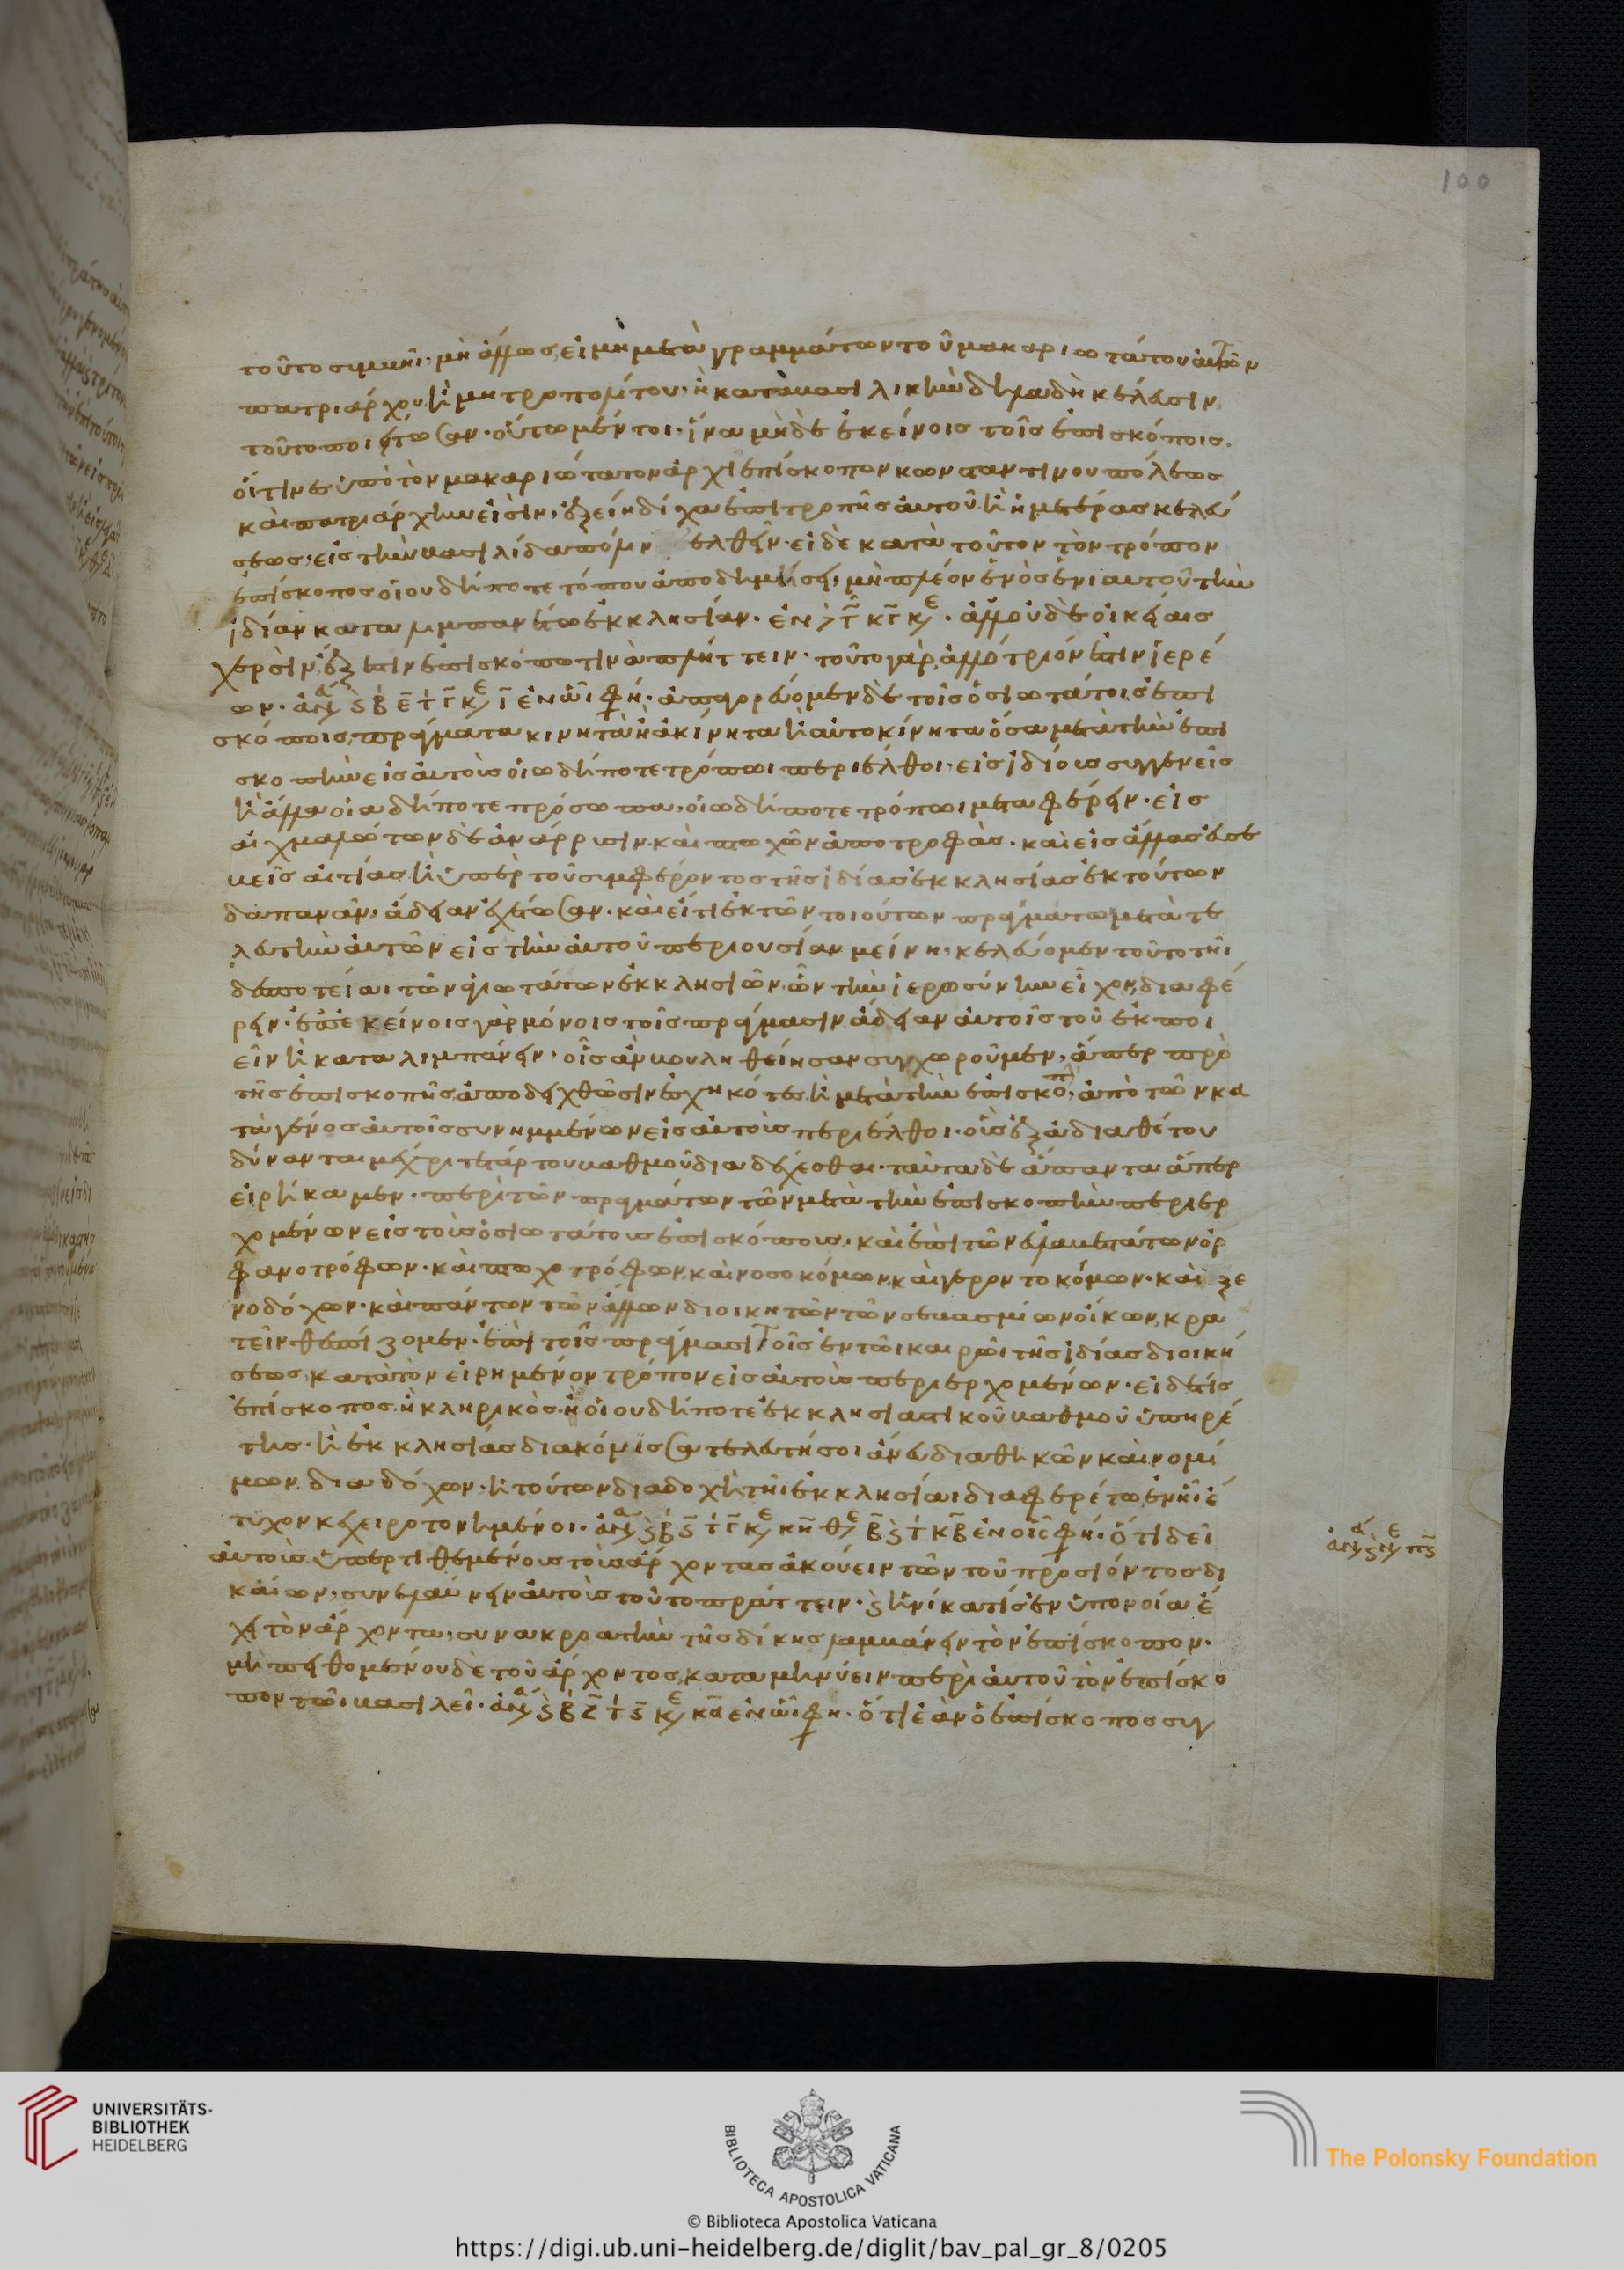 100
τοῦτο συμβῆι· μὴ ἄλλως, εἰ μὴ μετὰ γραμμάτων τοῦ μακαριωτάτου αὐτῶν
πατριάρχου, ἢ μητροπολίτου· ἢ κατὰ βασιλικὴν δηλαδὴ κέλευσιν,
τοῦτο ποιείτωσαν· οὕτω μέντοι· ἵνα μὴ δὲ ἐκείνοις τοῖς ἐπισκόποις.
οἵτινες ὑπὸ τὸν μακαριώτατον ἀρχιεπίσκοπον κωνσταντινουπόλεως
καὶ πατριάρχην εἰσὶν, ἐξείη δίχα ἐπιτροπῆς αὐτοῦ ἢ ἡμετέρας κελεύ
σεως· εἰς τὴν βασιλίδα πόλιν ἐλθεῖν· εἰ δὲ κατὰ τοῦτον τὸν τρόπον
ἐπίσκοπος οἱουδήποτε τόπου ἀποδημήσει, μὴ πλέον ἑνὸς ἐνιαυτοῦ τὴν
ἰδίαν καταλιμπανέτω ἐκκλησίαν·
ἀλλ' οὐδὲ οἰκείαις
χερσὶν ἔξεστιν ἐπισκόπω τινὰ πλήττειν· τοῦτο γὰρ ἀλλότριόν ἐστιν ἱερέ
ων·
ἀπαγορεύομεν δὲ τοῖς ὁσιωτάτοις ἐπι
σκόποις, πράγματα κινητὰ ἢ ἀκίνητα ἢ αὐτοκίνητα ὅσα μετὰ τὴν ἐπι
σκοπὴν εἰς αὐτοὺς οἱωδήποτε τρόπωι περιέλθοι· εἰς ἰδίους συγγενεῖς
ἢ ἄλλα οἱαδήποτε πρόσωπα, οἱωδήποτε τρόπωι μεταφέρειν· εἰς
αἰχμαλώτων δὲ ἀνάρρυσιν· καὶ πτωχῶν ἀποτροφὰς· καὶ εἰς ἄλλας εὐσε
βεῖς αἰτίας, ἢ ὑπὲρ τοῦ συμφέροντος τῆς ἰδίας ἐκκλησίας ἐκ τούτων
δαπανᾶν, ἄδειαν ἐχέτωσαν· καὶ εἴ τι ἐκ τῶν τοιούτων πραγμάτων μετὰ τε
λευτὴν αὐτῶν εἰς τὴν αὐτοῦ περιουσίαν μείνη, κελεύομεν τοῦτο τῆι
δεσποτείαι τῶν ἁγιωτάτων ἐκκλησιῶν, ὧν τὴν ἱερωσύνην εἶχον, διαφέ
ρειν· ἐπ' ἐκείνοις γὰρ μόνοις τοῖς πράγμασιν ἄδειαν αὐτοῖς τοῦ ἐκποι
εῖν ἢ καταλιμπάνειν, οἷς ἂν βουληθείησαν συγχωροῦμεν, ἅπερ πρὸ
τῆς ἐπισκοπῆς ἀποδειχθῶσιν ἐσχηκότες, ἢ μετὰ τὴν ἐπισκοπ, ἀπὸ τῶν κα
τὰ γένος αὐτοῖς συνημμένων εἰς αὐτοὺς περιέλθοι· οἷς ἐξ ἀδιαθέτου
δύνανται μέχρι τετάρτου βαθμοῦ διαδέχεσθαι· ταῦτα δὲ ἅπαντα ἅπερ
εἰρήκαμεν· περὶ τῶν πραγμάτων τῶν μετὰ τὴν ἐπισκοπὴν περιερ
χομένων εἰς τοὺς ὁσιωτάτους ἐπισκόπους, καὶ ἐπὶ τῶν εὐλαβεστάτων ὀρ
φανοτρόφων· καὶ πτωχοτρόφων, καὶ νοσοκόμων, καὶ γεροντοκόμων· καὶ ξε
νοδόχων· καὶ πάντων τῶν ἄλλων διοικητῶν τῶν σεβασμίων οἴκων, κρα
τεῖν θεσπίζομεν· ἐπὶ τοῖς πράγμασι τοῖς ἐν τῶι καιρῶι τῆς ἰδίας διοική
σεως, κατὰ τὸν εἰρημένον τρόπον εἰς αὐτοὺς περιερχομένων· εἰ δέ τις
ἐπίσκοπος, ἢ κληρικὸς, ἢ οἱουδήποτε ἐκκλησιαστικοῦ βαθμοῦ ὑπηρέ
της· ἢ ἐκκλησίας διακόνισσα τελευτήσοι ἄνευ διαθηκῶν καὶ νομί
μων διαδόχων, ἡ τούτων διαδοχὴ τῆι ἐκκλησίαι διαφερέτω, ἐν ἧι ἐ
τύχον κεχειροτονημένοι·
ὅτι δεῖ
αὐτοὺς ὑπερτιθεμένους τοὺς ἄρχοντας ἀκούειν τῶν τοῦ προσιόντος δι
καίων, συνελαύνειν αὐτοὺς τοῦτο πράττειν·
ἡνίκα τὶς ἐν ὑπονοία ἔ
χει τὸν ἄρχοντα, συνακροατὴν τῆς δίκης λαμβάνειν τὸν ἐπίσκοπον·
μὴ πειθομένου δὲ τοῦ ἄρχοντος, καταμηνύειν περὶ αὐτοῦ τὸν ἐπίσκο
πον τῶι βασιλεῖ·
ὅτι ἐὰν ὁ ἐπίσκοπος συγ
UNIVERSITÄTS-
BIBLIOTHEK
HEIDELBERG
BIBLIOTECA APOSTOLICA VATICANA
The Polonsky Foundation
© Biblioteca Apostolica Vaticana
https://digi.ub.uni-heidelberg.de/diglit/bav_pal_gr_8/0205